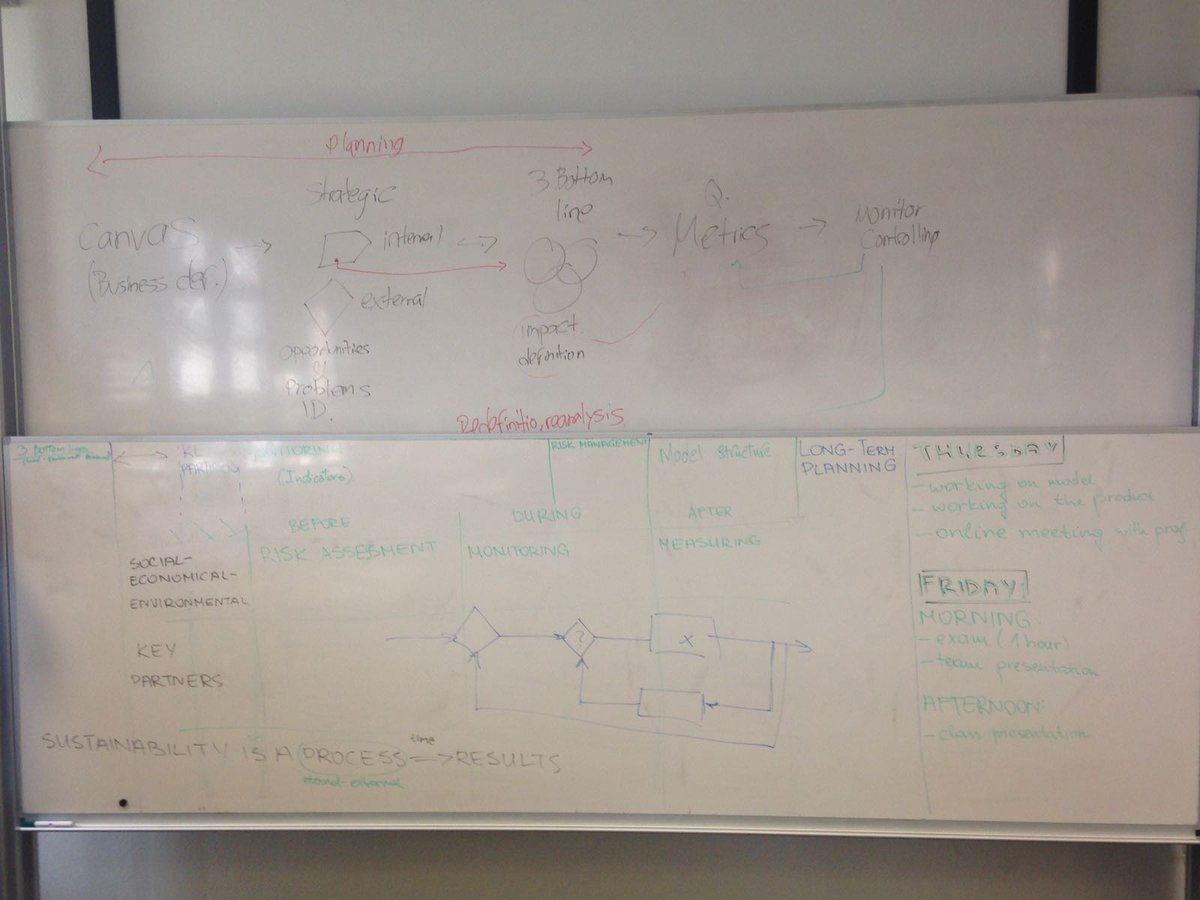 Planning
Strategic
3 Bottom
line
Q.
Canvas
(Business der.)
internal
Metrics
Monitor
Controlling
external
impact
definition
opportunities
&
Problems
ID.
reanalysis
3 Bottom
RISK MANAGEMENT
Model Structure
LONG-TERM
PLANNING
(Indicators)
BEFORE
DURING
AFTER
RISK ASSESMENT
MONITORING
MEASURING
SOCIAL-
ECONOMICAL-
ENVIRONMENTAL
KEY
PARTNERS
?
x
SUSTAINABILITY IS A PROCESS time => RESULTS
THURSDAY
- working on model
- working on the product
- online meeting with prof
FRIDAY:
MORNING:
- exam (1 hour)
- team presentation
AFTERNOON:
- class presentation